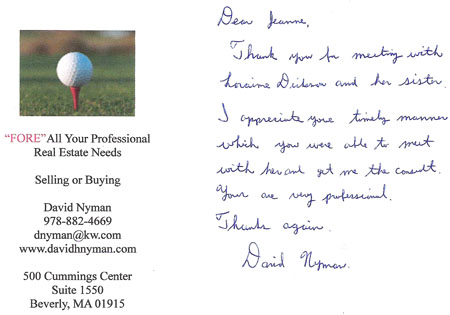 "FORE"All Your Professional
Real Estate Needs
Selling or Buying
David Nyman
978-882-4669
dnyman@kw.com
www.davidhnyman.com
500 Cummings Center
Suite 1550
Beverly, MA 01915
Dear Jeanne,
Thank you for meeting with
Loraine and her sister.
I appreciate your timely manner
which you were able to meet
with her and get me the consult.
Your are very professional.
Thanks again.
David Nyman